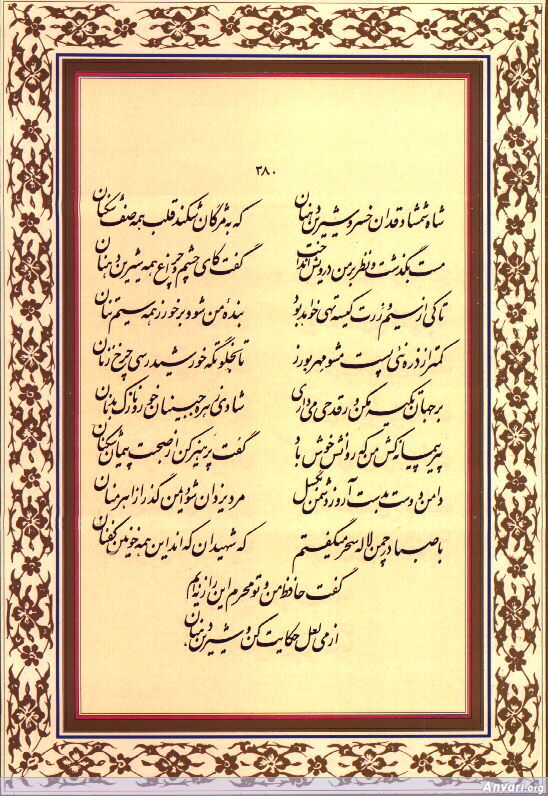 ۳۸۰
شاه شمشاد قدان خسرو شیرین دهنان که به مژگان شکند قلب همه صف شکنان
مست بگذشت و نظر بر من درویش انداخت گفت کای چشم و چراغ همه شیرین دهنان
تا کی از سیم و زرت کیسه تهی خواهد بود بندهٔ من شو و برخور ز همه سیمتنان
کمتر از ذره نئی پست مشو مهر بورز تا بخلوتگه خورشید رسی چرخ زنان
بر جهان تکیه مکن ور قدحی می داری شادی زهره جبینان خور و نازک بدنان
پیر پیمانه کش من که روانش خوش باد گفت پرهیز کن از صحبت پیمان شکنان
دامن دوست بدست آر و ز دشمن بگسل مرد یزدان شو و ایمن گذر از اهرمنان
با صبا در چمن لاله سحر میگفتم که شهیدان که اند این همه خونین کفنان
گفت حافظ من و تو محرم این راز نه‌ایم
از می لعل حکایت کن و شیرین دهنان
Anvari.org